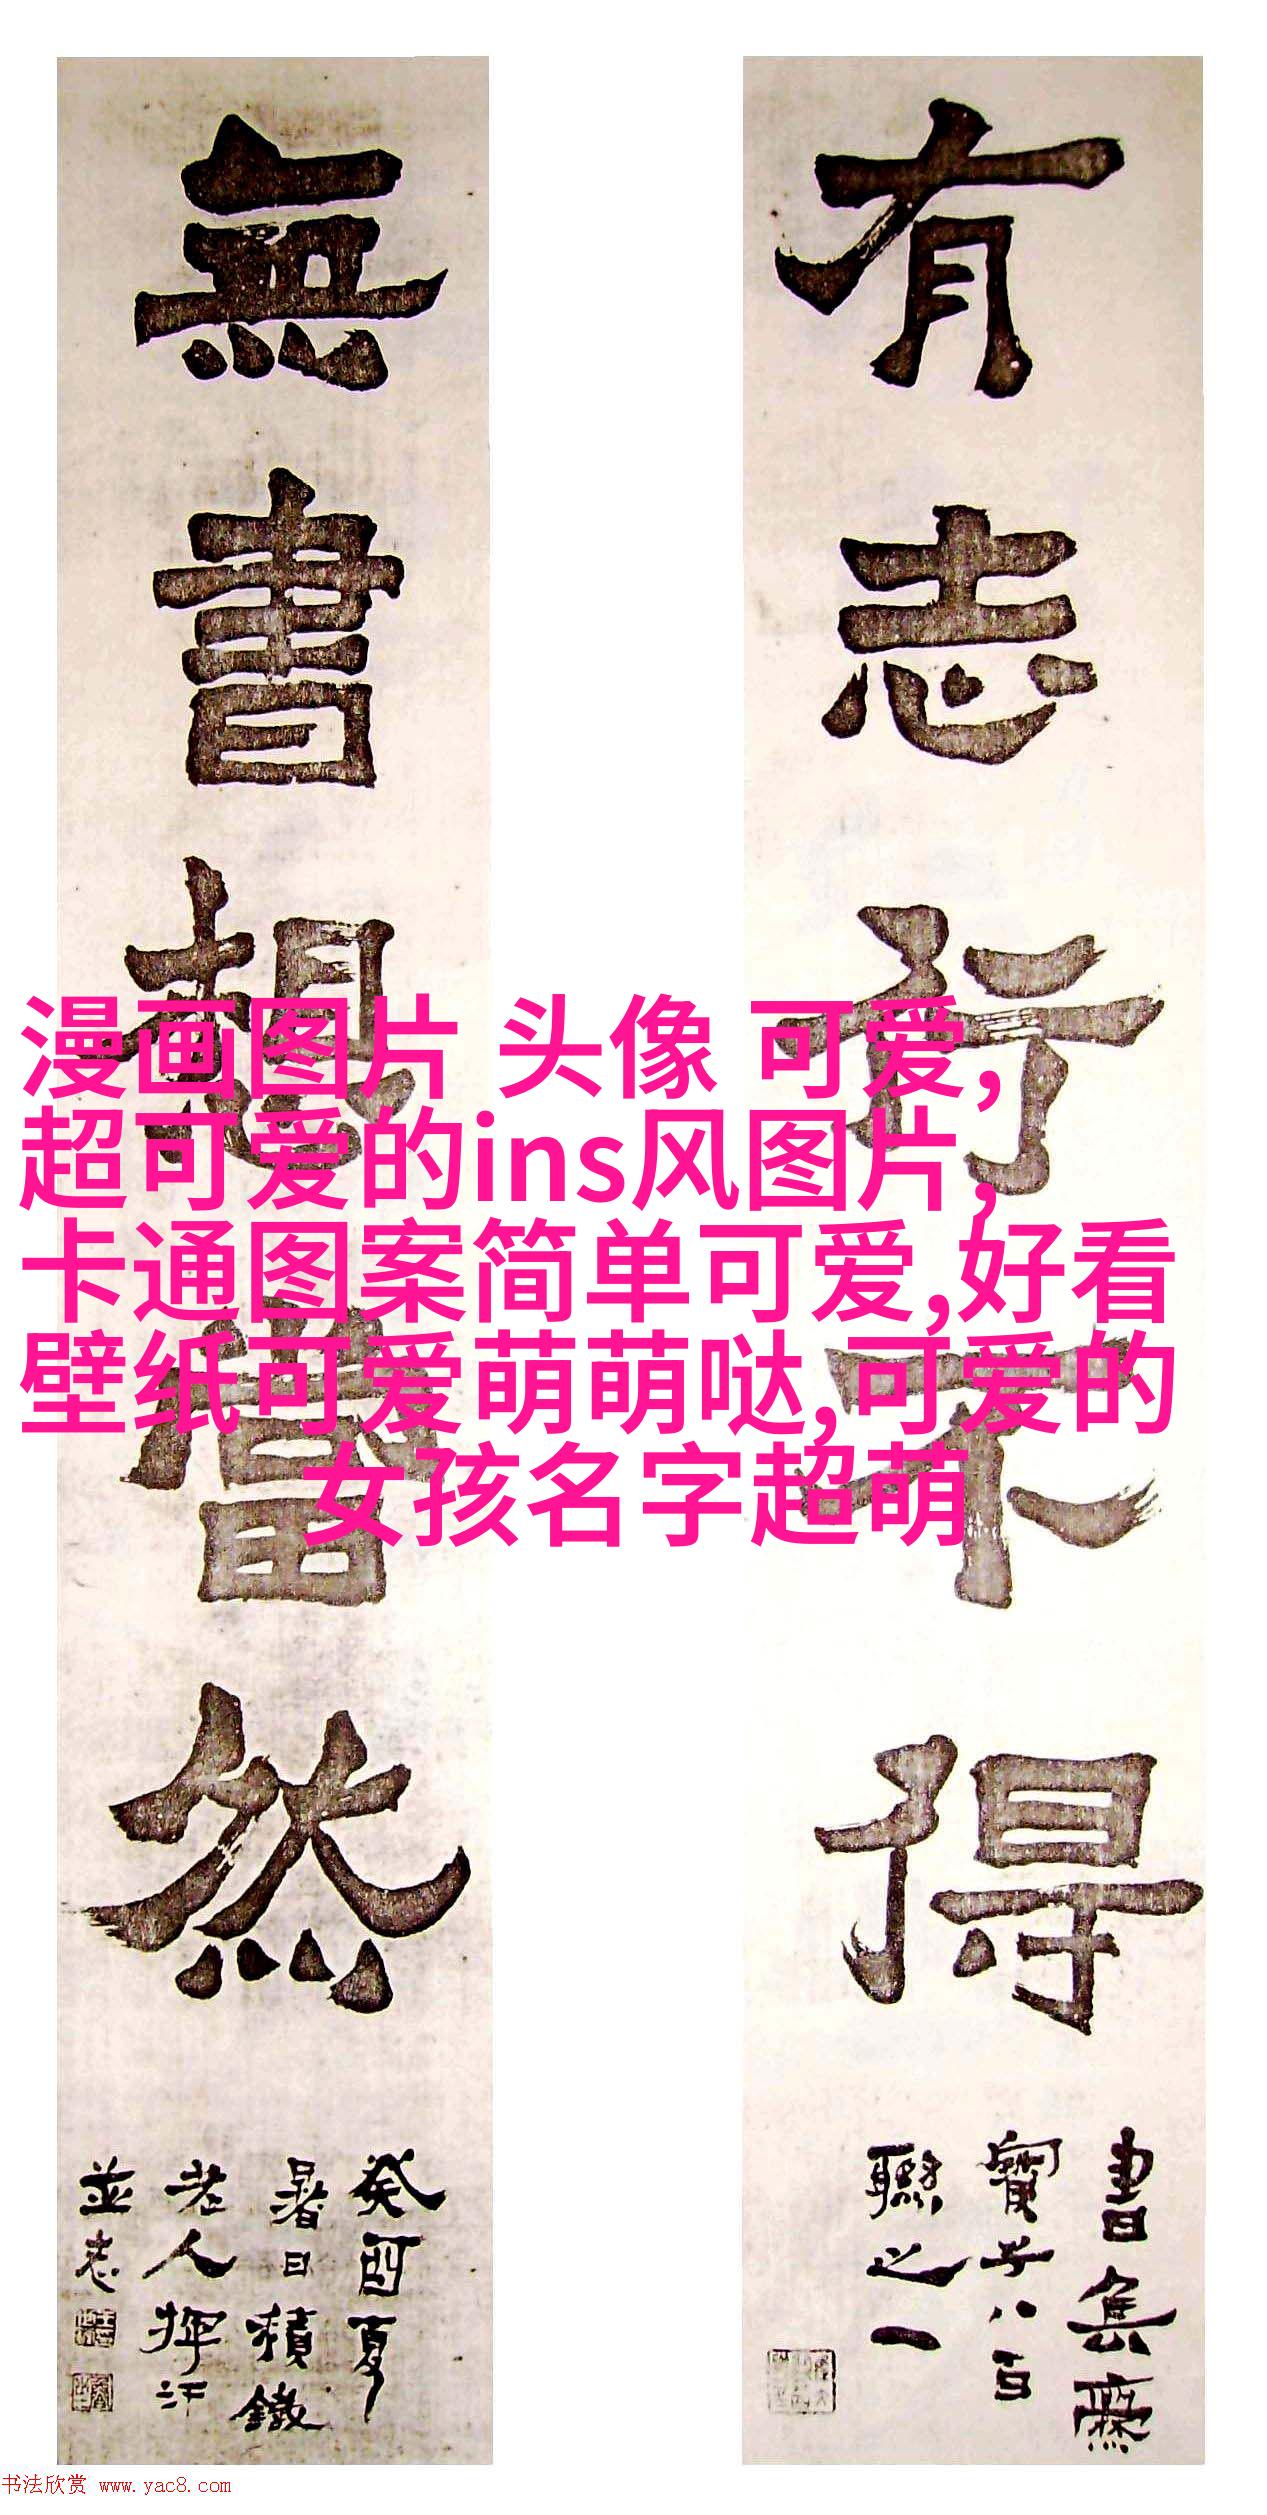 有志行不得
書集爨
寶子八百
聯之一
無書想當然
癸酉夏
暑日積鐵
老人揮汗
並志
漫画图片 头像 可爱,
超可爱的ins风图片,
卡通图案简单可爱,好看
壁纸可爱萌萌哒,可爱的
女孩名字超萌
书法欣赏 www.yac8.com